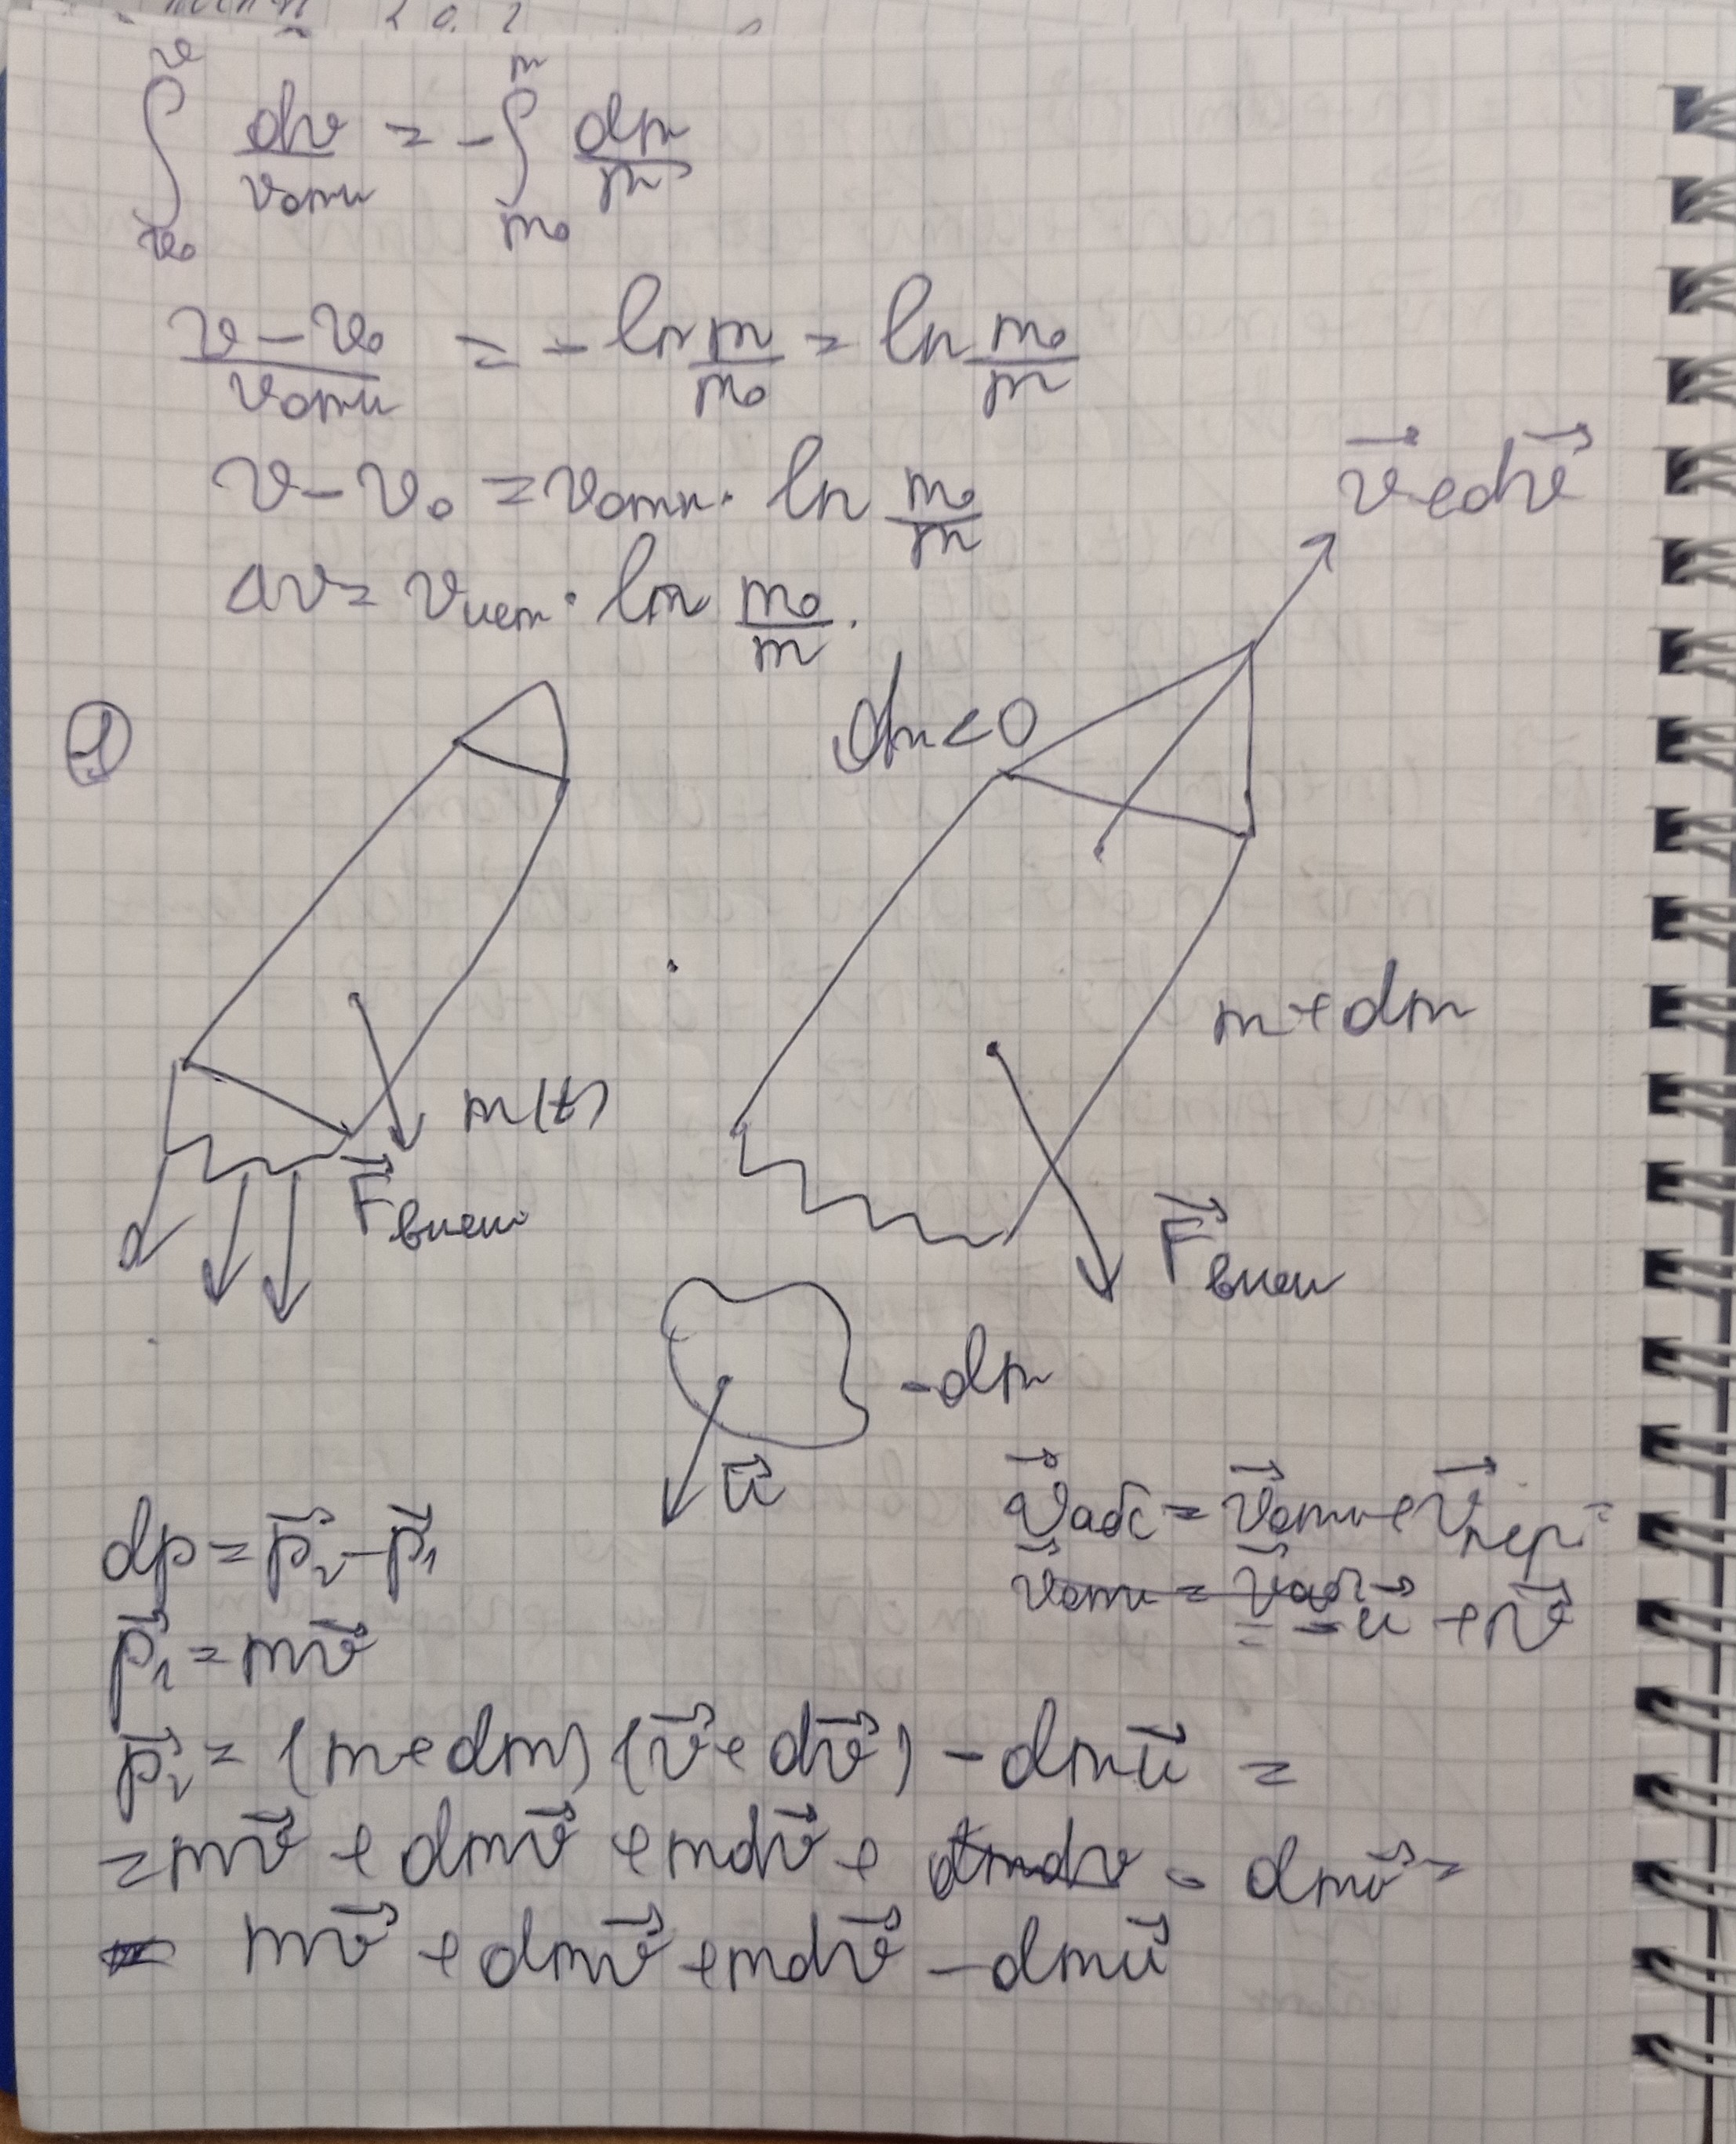 ∫_{v₀}^{v} dv/v_отн = -∫_{m₀}^{m} dm/m
(v - v₀)/v_отн = -ln m/m₀ = ln m₀/m
v - v₀ = v_отн · ln m₀/m
Δv = v_ист · ln m₀/m.
v⃗ + dv⃗
①
dm < 0
m + dm
m(t)
F⃗_внеш
F⃗_внеш
-dm
u⃗
v⃗_абс = v⃗_отн + v⃗_пер =
= -u⃗ + v⃗
dp = p⃗₂ - p⃗₁
p⃗₁ = mv⃗
p⃗₂ = (m + dm)(v⃗ + dv⃗) - dmu⃗ =
= mv⃗ + dmv⃗ + mdv⃗ + dmdv - dmv⃗ =
= mv⃗ + dmv⃗ + mdv⃗ - dmu⃗